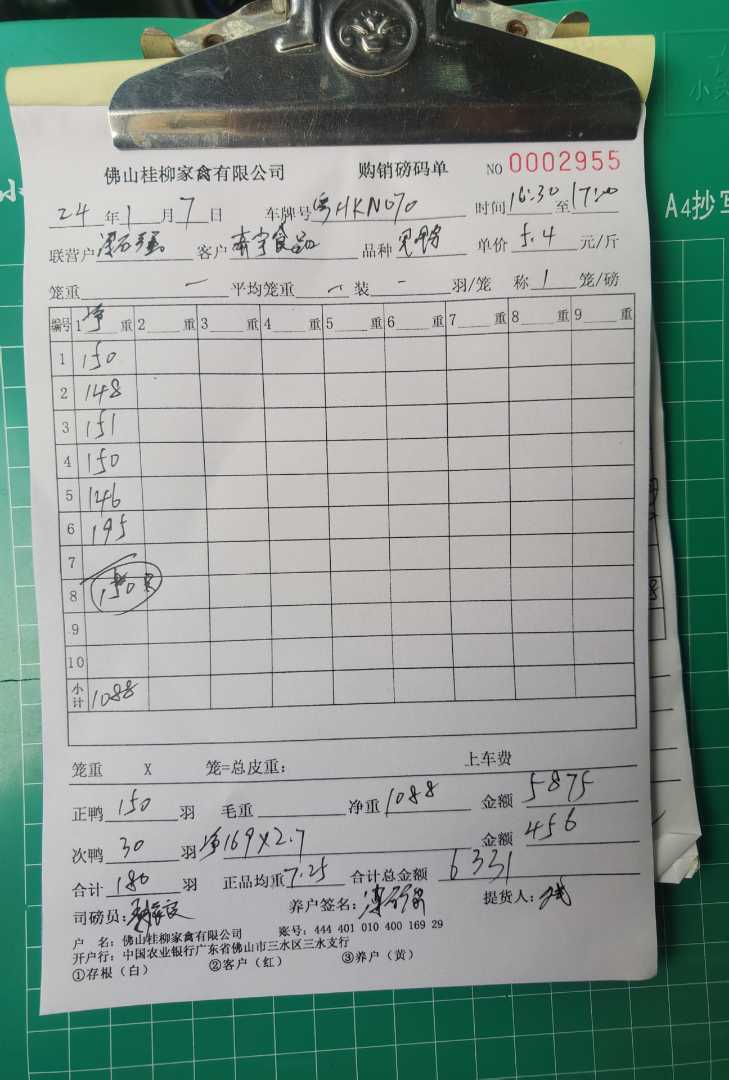 佛山桂柳家禽有限公司 购销磅码单 NO 0002955
24 年 1 月 7 日 车牌号 粤HKN070 时间 16:30 至 17:00
联营户 客户 奔宇食品 品种 单价 5.4 元/斤
笼重 一 平均笼重 一 装 - 羽/笼 称 1 笼/磅
编号 1 净 重 2 重 3 重 4 重 5 重 6 重 7 重 8 重 9 重
1 150
2 148
3 151
4 150
5 146
6 195
7
8 150只
9
10
小计 1088
笼重 X 笼=总皮重: 上车费
正鸭 150 羽 毛重 净重 1088 金额 5875
次鸭 30 羽 净169X2.7 金额 456
合计 180 羽 正品均重 7.25 合计总金额 6331
司磅员: 养户签名: 提货人:
户 名: 佛山桂柳家禽有限公司 账号: 444 401 010 400 169 29
开户行: 中国农业银行广东省佛山市三水区三水支行
①存根（白） ②客户（红） ③养户（黄）
A4抄写